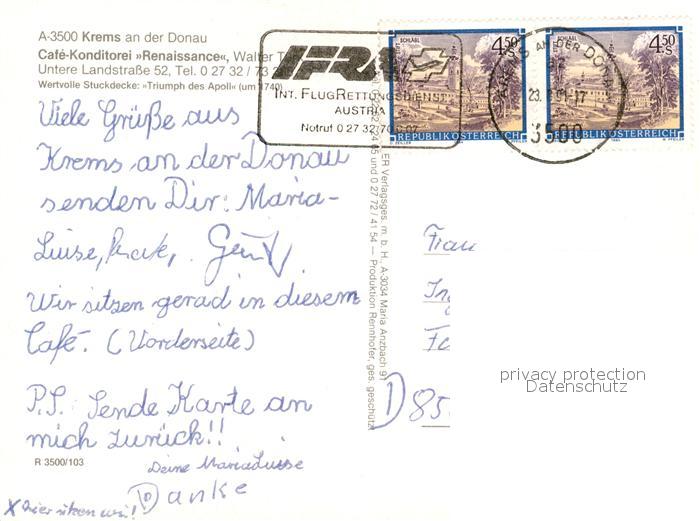 A-3500 Krems an der Donau
Café-Konditorei »Renaissance«, Walter
Untere Landstraße 52, Tel. 0 27 32 / 73
Wertvolle Stuckdecke: »Triumph des Apoll« (um 1740)
Viele Grüße aus
Krems an der Donau
senden Dir: Maria-
Luise,
Wir sitzen gerad in diesem
Café. (Vorderseite)
P.S. Sende Karte an
mich zurück!!
Deine MariaLuise
Danke
X hier sitzen wir!
R 3500/103
IFRA
INT. FLUGRETTUNGSDIENST
AUSTRIA
Notruf 0 27 32/70
SCHLÄGL
4.50 S
REPUBLIK ÖSTERREICH
SCHLÄGL
4.50 S
REPUBLIK ÖSTERREICH
AN DER DONAU
3500
Verlagsges. m. b. H., A-3034 Maria Anzbach 91
und 0 27 72 / 41 54 — Produktion Rennhofer, ges. geschützt
Frau
D 85
privacy protection
Datenschutz